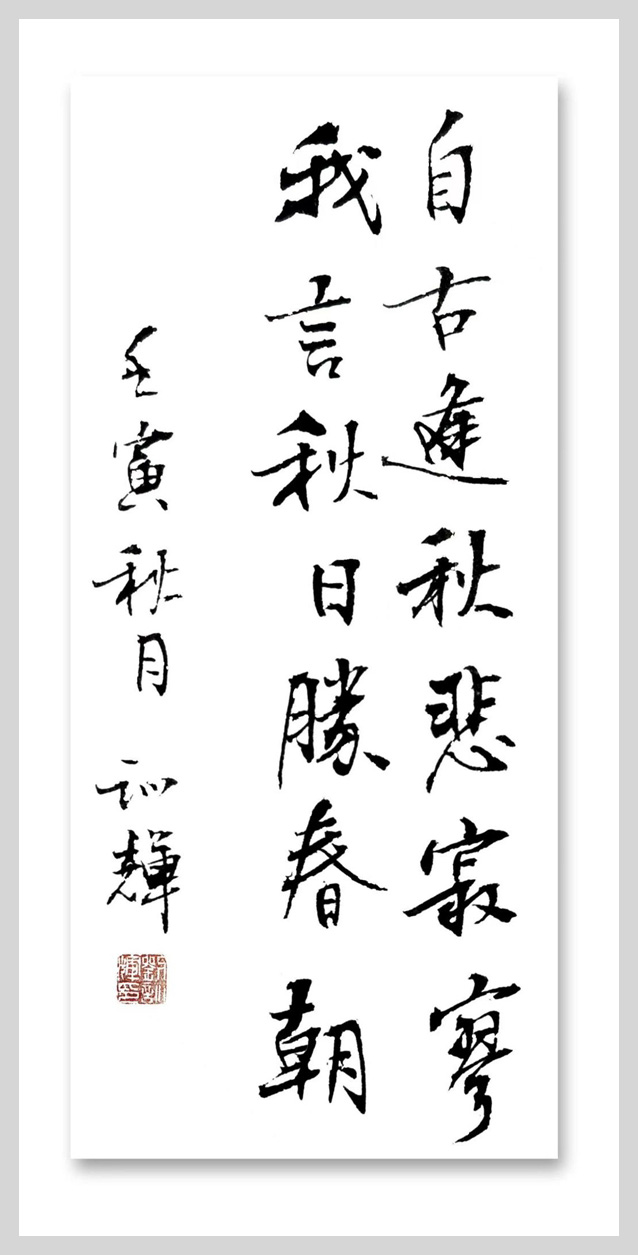 自古逢秋悲寂寥
我言秋日勝春朝
壬寅秋月 訓輝